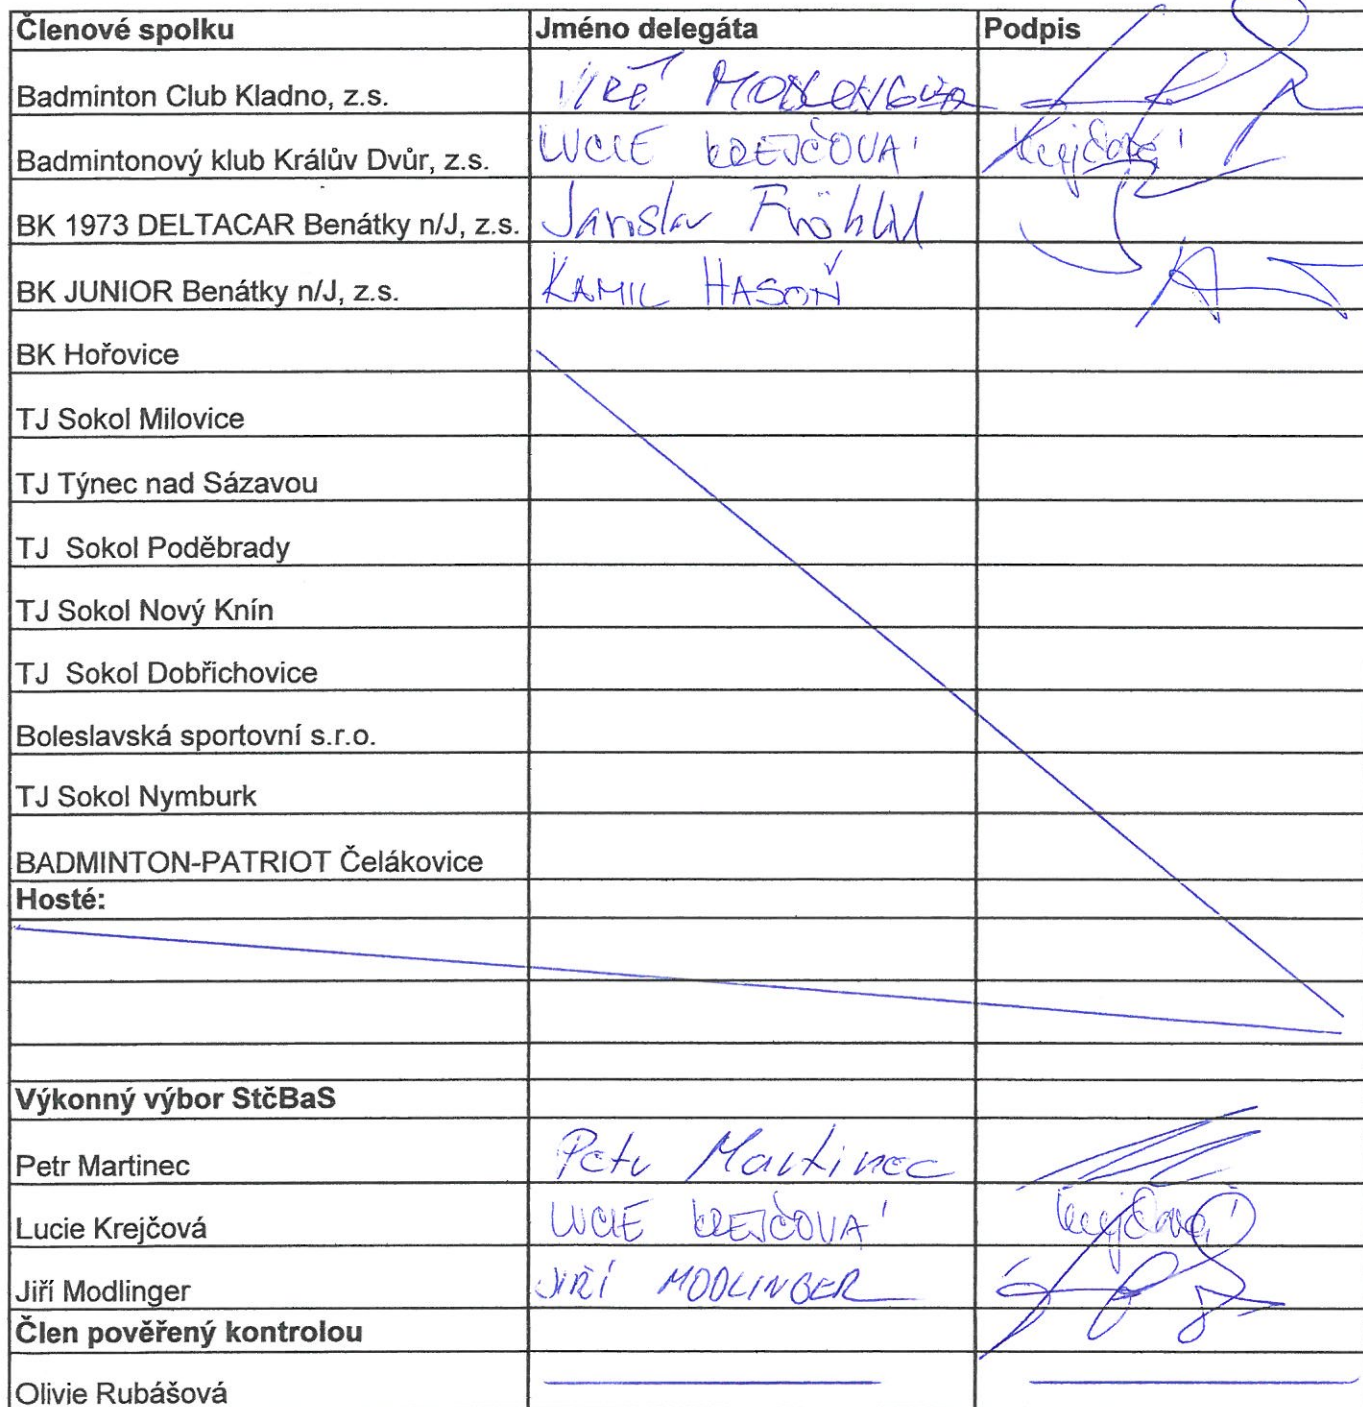 Členové spolku Jméno delegáta Podpis
Badminton Club Kladno, z.s.
Badmintonový klub Králův Dvůr, z.s. LUCIE KREJČOVÁ Krejčová
BK 1973 DELTACAR Benátky n/J, z.s. Jaroslav
BK JUNIOR Benátky n/J, z.s. KAMIL HASOŇ
BK Hořovice
TJ Sokol Milovice
TJ Týnec nad Sázavou
TJ Sokol Poděbrady
TJ Sokol Nový Knín
TJ Sokol Dobřichovice
Boleslavská sportovní s.r.o.
TJ Sokol Nymburk
BADMINTON-PATRIOT Čelákovice
Hosté:
Výkonný výbor StčBaS
Petr Martinec Petr Martinec
Lucie Krejčová LUCIE KREJČOVÁ Krejčová
Jiří Modlinger JIŘÍ MODLINGER
Člen pověřený kontrolou
Olivie Rubášová